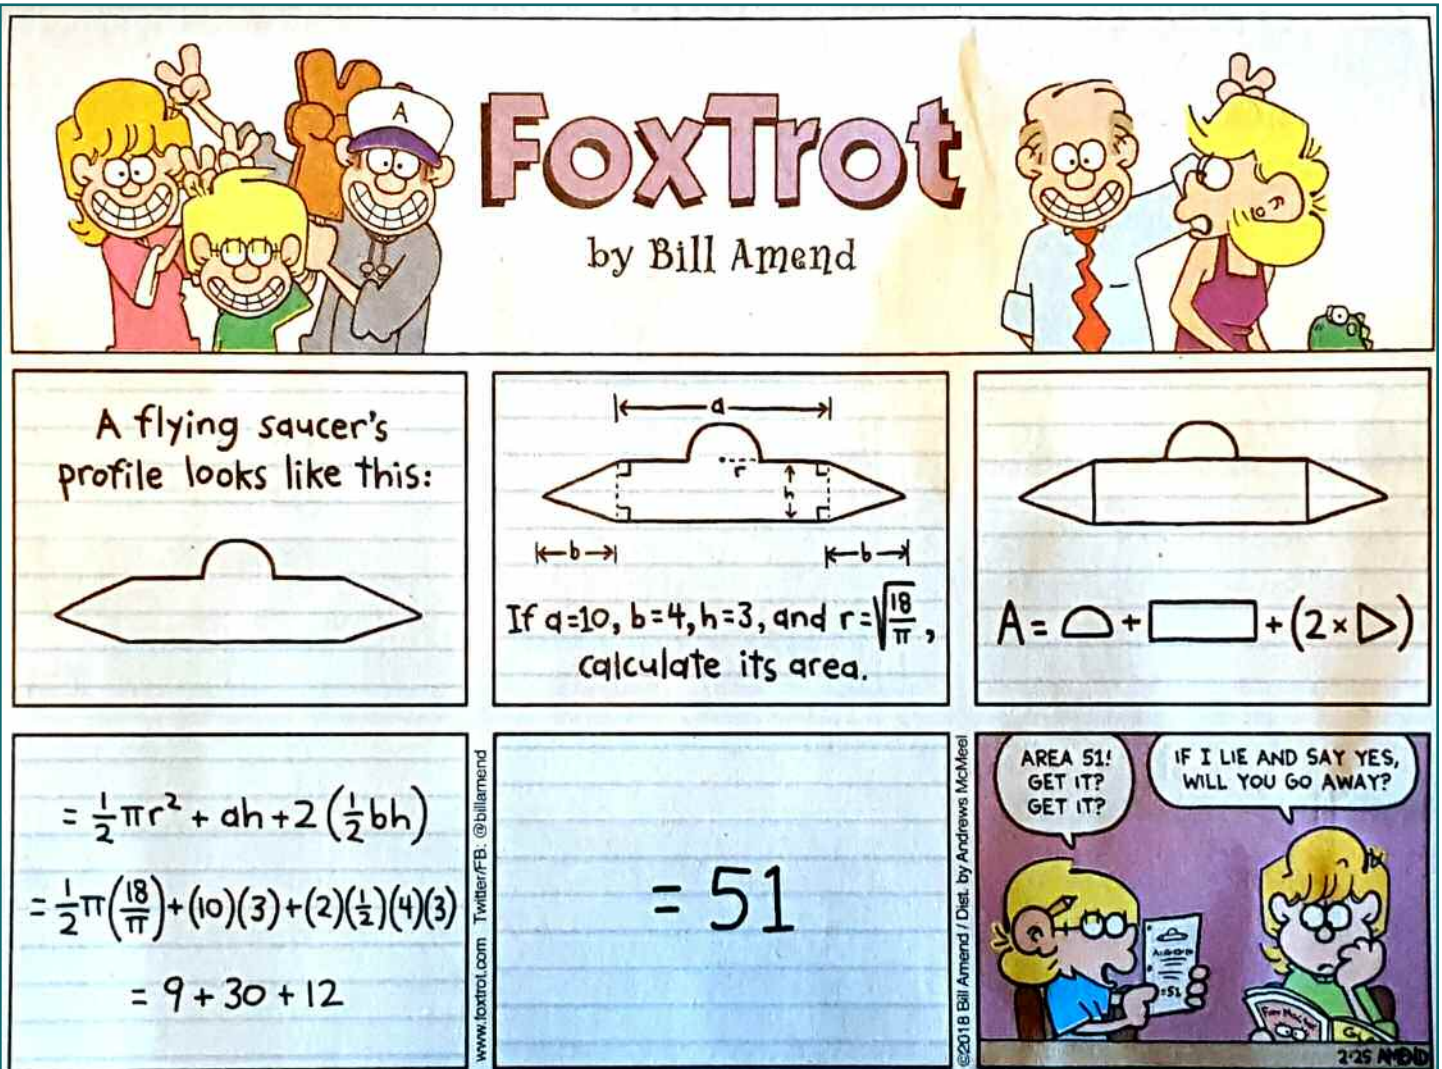 A
FoxTrot
by Bill Amend
A flying saucer's
profile looks like this:
a
r
h
b
b
If a=10, b=4, h=3, and r=√(18/π),
calculate its area.
A= + + (2× )
= 1/2 πr² + ah + 2 (1/2 bh)
= 1/2 π(18/π) + (10)(3) + (2)(1/2)(4)(3)
= 9 + 30 + 12
www.foxtrot.com Twitter/FB: @billamend
= 51
©2018 Bill Amend / Dist. by Andrews McMeel
AREA 51!
GET IT?
GET IT?
IF I LIE AND SAY YES,
WILL YOU GO AWAY?
=51
2·25 AMEND